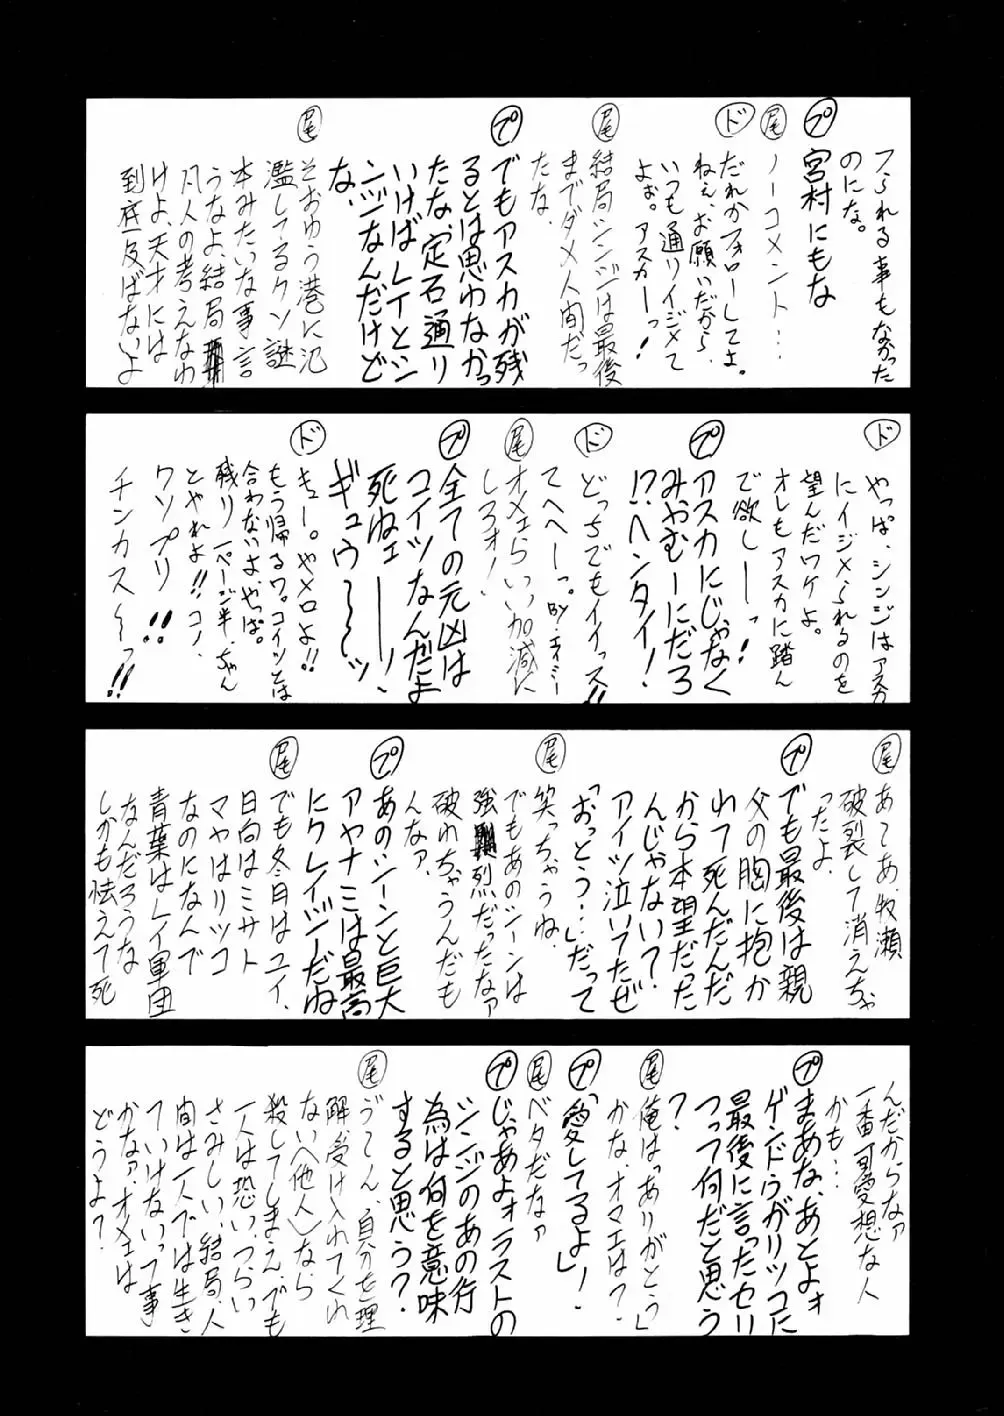 フられる事もなかった
のにな。
プ 宮村にもな
尾 ノーコメント…
ド だれかフォローしてよ。
ねぇ、お願いだから、
いつも通りイジメて
よぉ。アスカーっ!
尾 結局シンジは最後
までダメ人間だっ
たな、
プ でもアスカが残
るとは思わなかっ
たな、定石通り
いけばレイとシ
ンジなんだけど
な、
尾 そおゆう港に氾
濫してるクソ謎
本みたいな事言
うなよ、結局
凡人の考えなわ
けよ、天才には
到底及ばないよ
ド やっぱ、シンジはアスカ
にイジメられるのを
望んだワケよ。
オレもアスカに踏ん
で欲しーっ!
プ アスカにじゃなく
みやむーにだろ
!?ヘンタイ!
ド どっちでもイイっス!!
てへへーっ。BY.エイジー
尾 オメェらいい加減に
しろォ!
プ 全ての元凶は
コイツなんだよ
死ねェーー!
ギュウ〜〜〜ッ
ド キュー。やメロよ!!
もう帰るワ。コイツとは
合わないよ、やっぱ。
残り一ページ半、ちゃん
とやれよ!!コノ、
クソプリ!!
チンカス〜〜っ!!
尾 あてあ、牧瀬
破裂して消えちゃ
ったよ、
プ でも最後は親
父の胸に抱か
れて死んだんだ
から本望だった
んじゃない?
アイツ泣いてたぜ
「おっとう…」だって
尾 笑っちゃうね、
でもあのシーンは
強烈だったなァ
破れちゃうんだも
んなァ、
プ あのシーンと巨大
アヤナミは最高
にクレイジーだね
尾 でも冬月はユイ、
日向はミサト
マヤはリツコ
なのになんで
青葉はレイ軍団
なんだろうな
しかも怯えて死
んだからなァ
一番可愛想な人
かも…
プ まあな、あとよォ
ゲンドウがリツコに
最後に言ったセリ
フって何だと思う
?
尾 俺は「ありがとう」
かな、オマエは?
プ 「愛してるよ!」
尾 ベタだなァ
プ じゃあよォラストの
シンジのあの行
為は何を意味
すると思う?
尾 う〜ん、自分を理
解受け入れてくれ
ない〈他人〉なら
殺してしまえ、でも
一人は恐い、つらい
さみしい、結局、人
間は一人では生き
ていけないって事
かなァ、オメェは
どうよ?